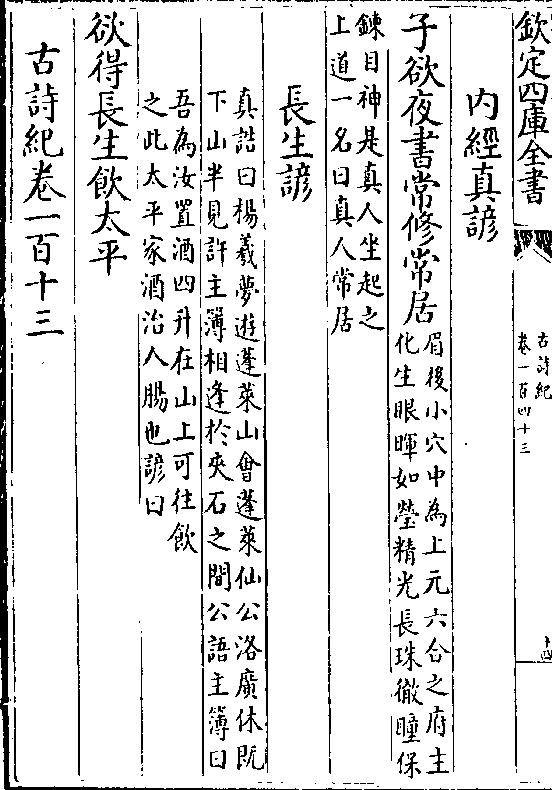 欽定四庫全書
古詩紀
卷一百四十三
十四
內經真諺
子欲夜書常修常居
眉後小穴中為上元六合之府主
化生眼暉如瑩精光長珠徹瞳保
鍊目神是真人坐起之
上道一名曰真人常居
長生諺
真誥曰楊羲夢遊蓬萊山會蓬萊仙公洛廣休既
下山半見許主簿相逢於夾石之間公語主簿曰
吾為汝置酒四升在山上可往飲
之此太平家酒治人腸也諺曰
欲得長生飲太平
古詩紀卷一百十三